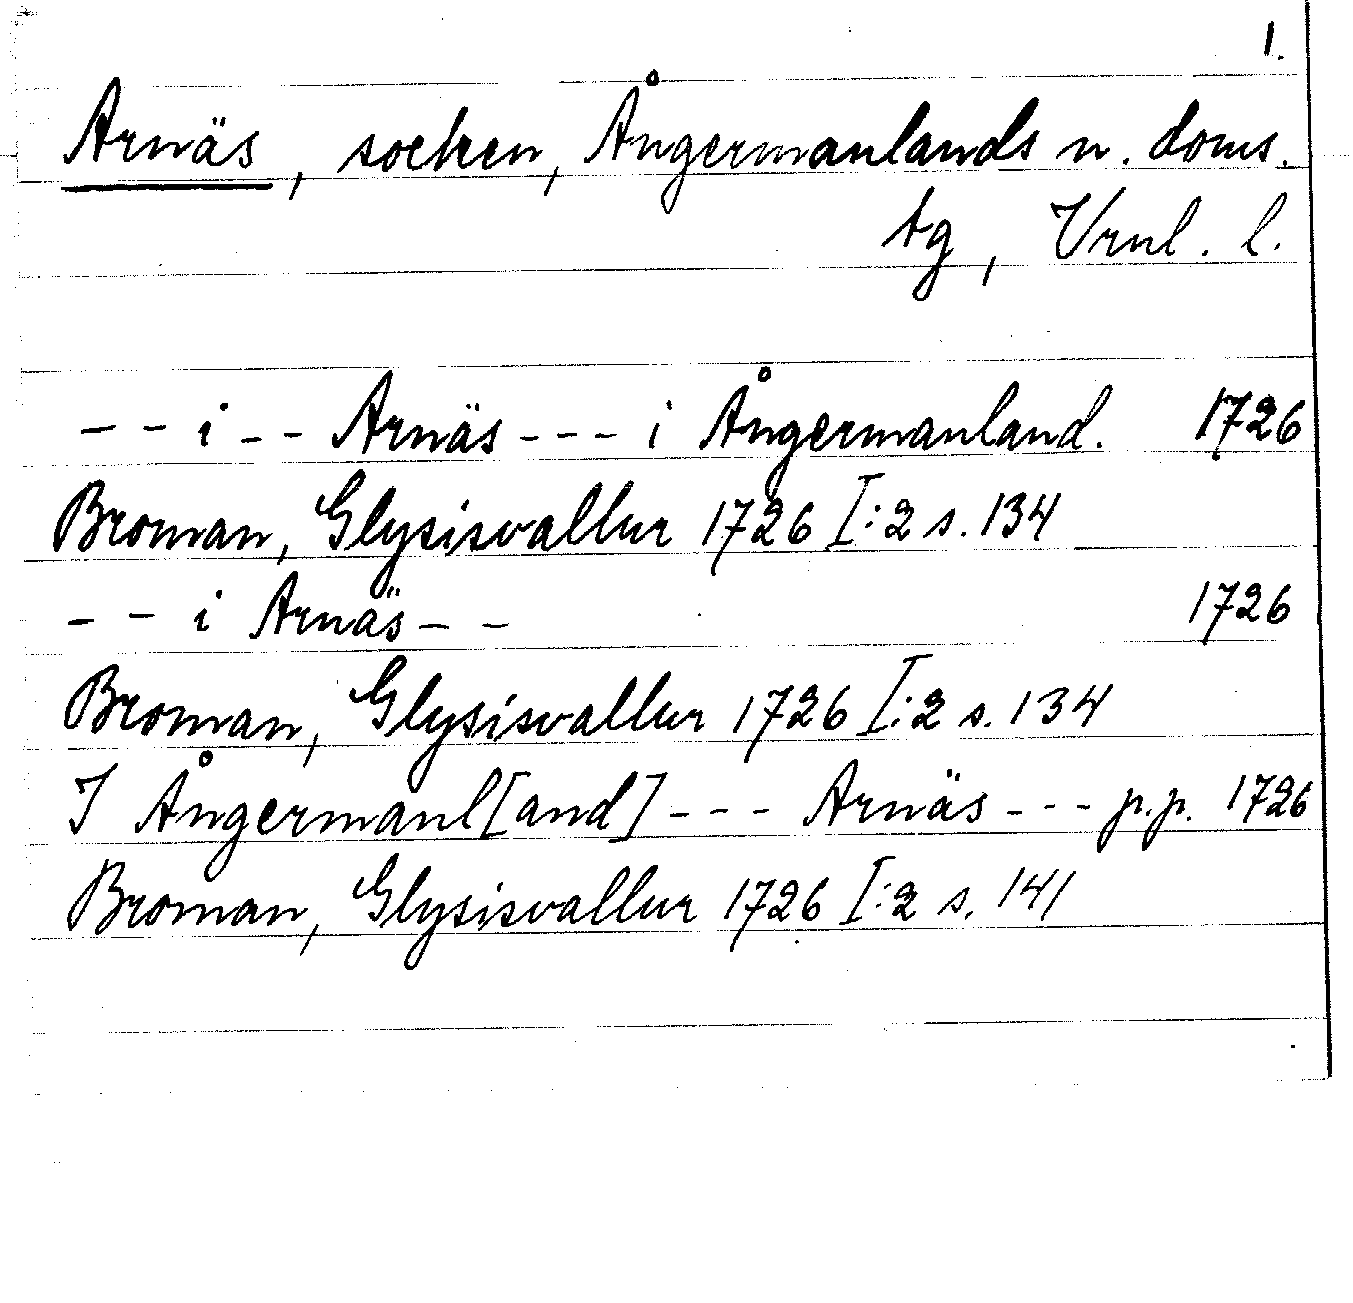 1.
Arnäs, socken, Ångermanlands n. doms.
tg, Vrnl. l.
- - i - - Arnäs - - - i Ångermanland. 1726
Broman, Glysisvallur 1726 I:2 s. 134
- - i Arnäs - - 1726
Broman, Glysisvallur 1726 I:2 s. 134
I Ångermanl[and] - - - Arnäs - - - p.p. 1726
Broman, Glysisvallur 1726 I:2 s. 141